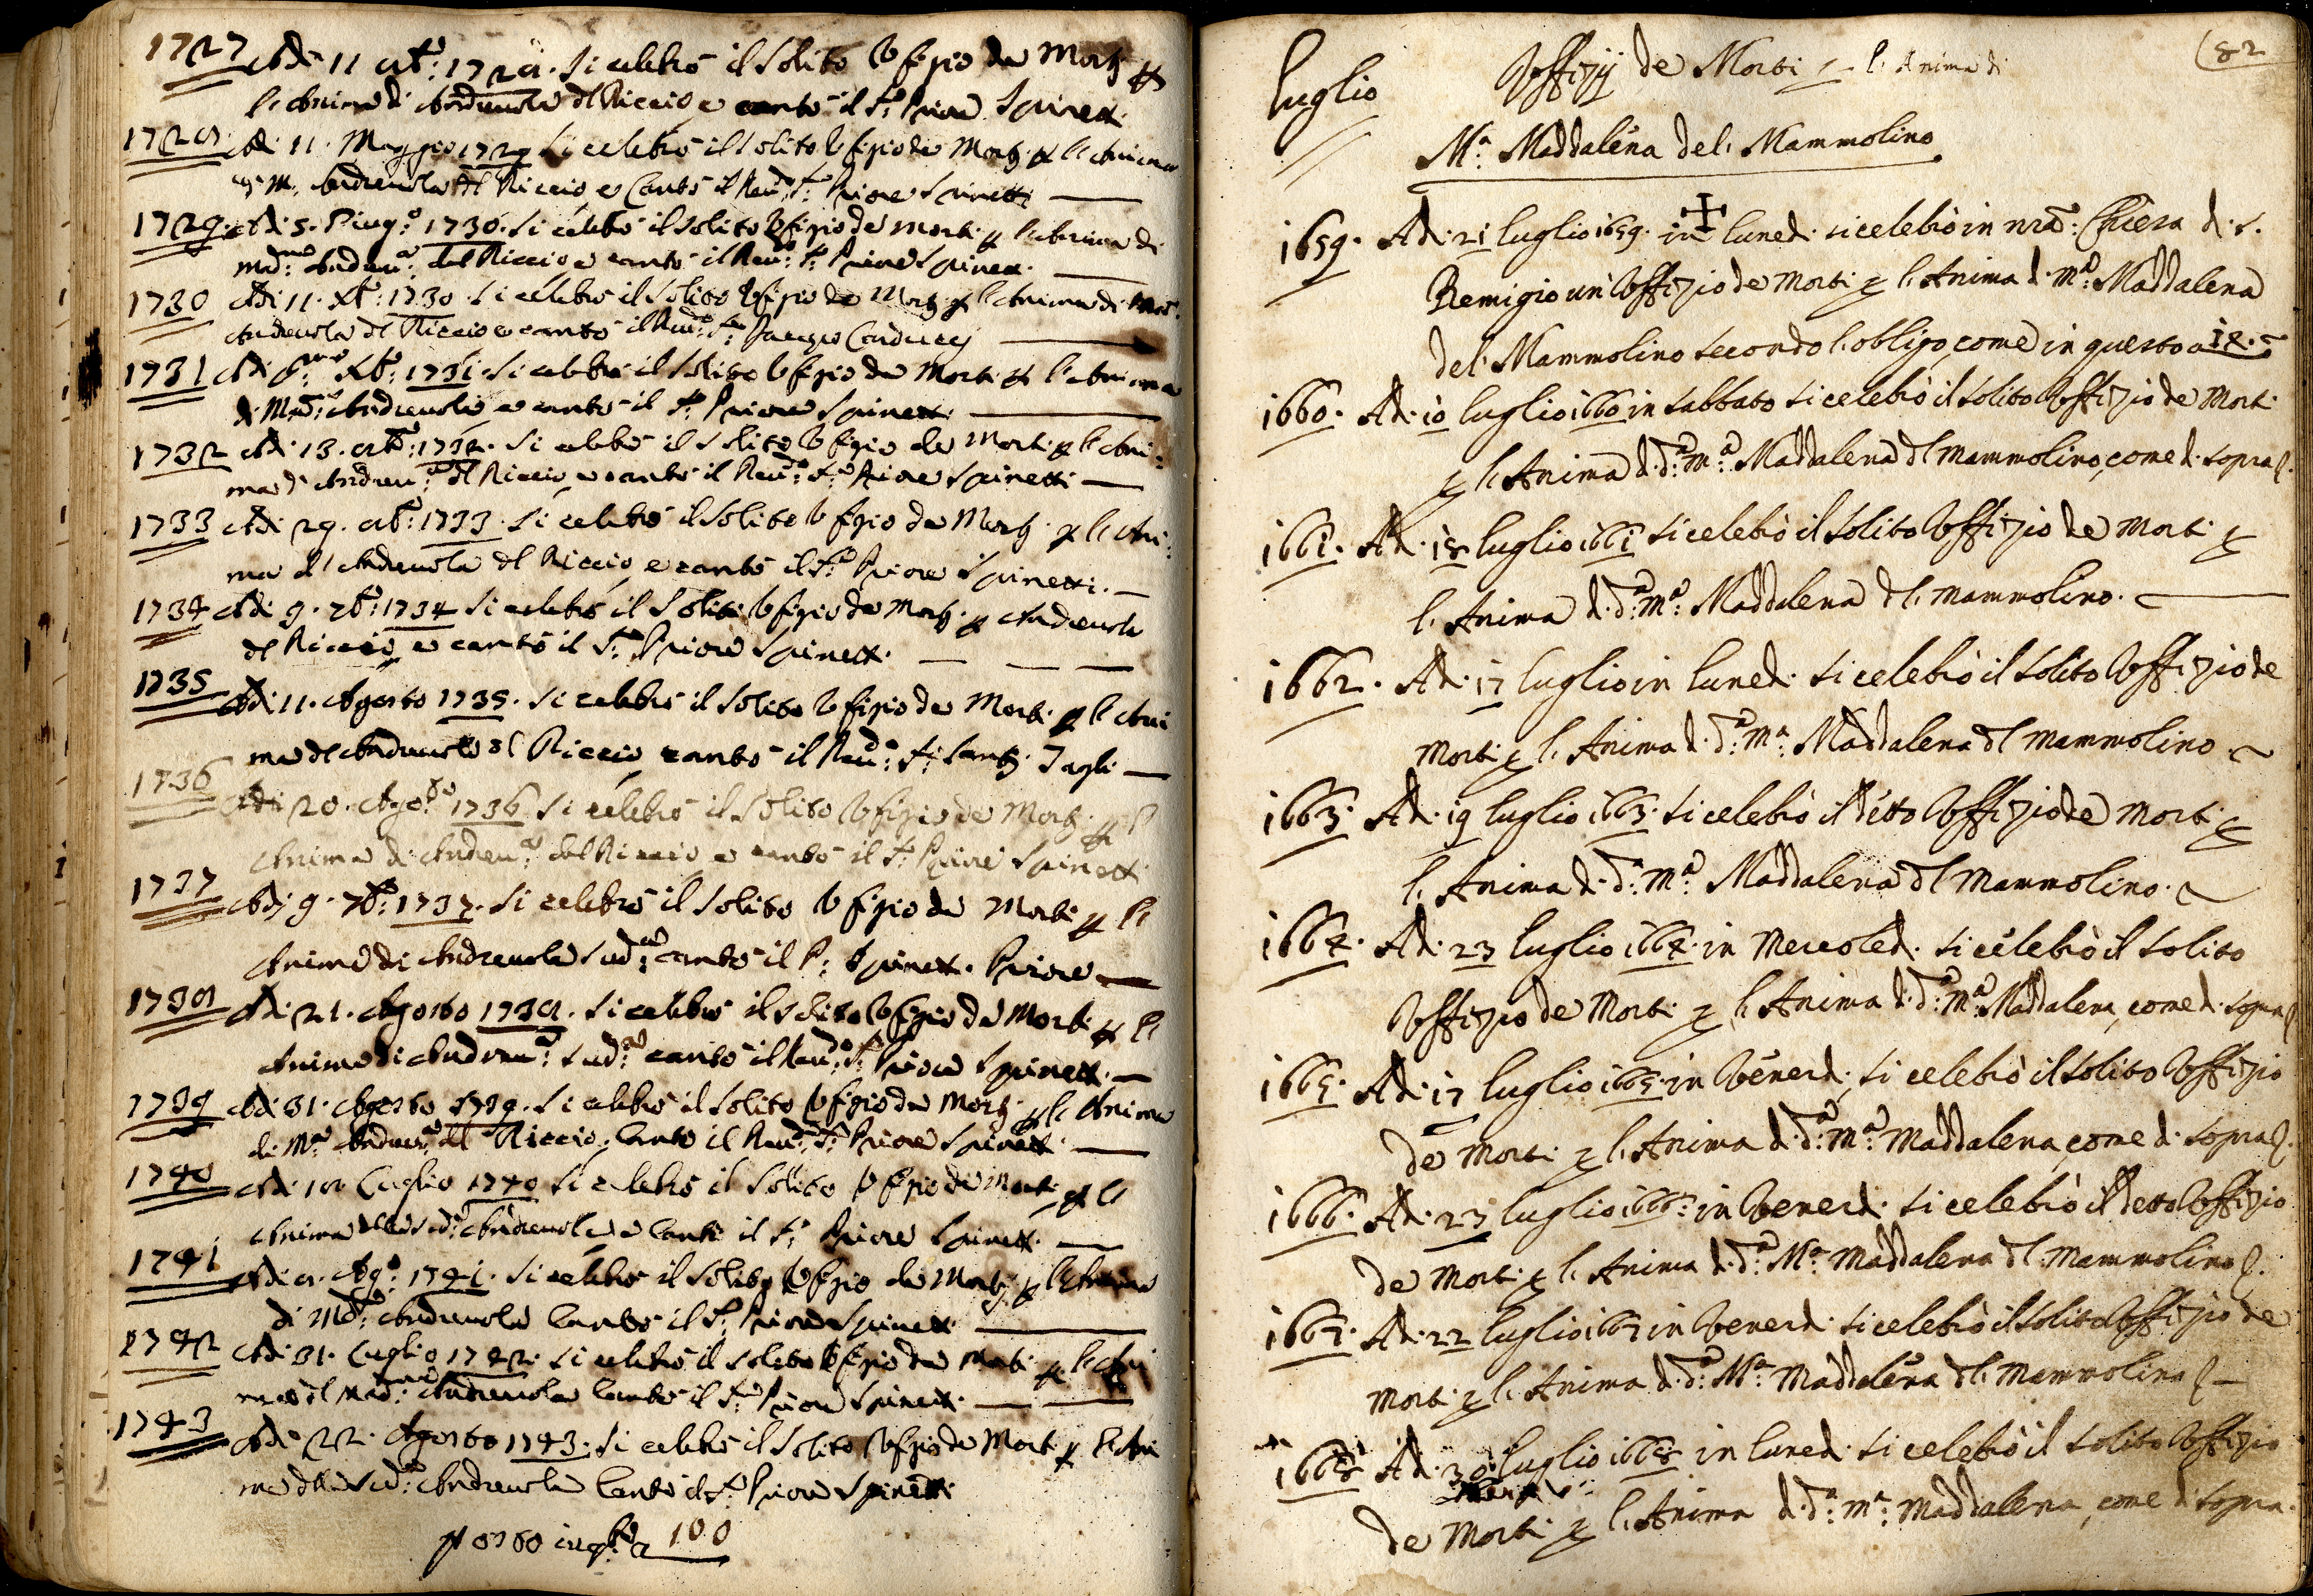 1727 Adi 11 8bre: 1728. si celebrò il solito Vfizio de Morti p
l'Anima di Andreuola del Riccio e cantò il Sr: Priore Spinetti
1728 Adi 11. Maggio 1729 si celebrò il solito Vfizio de Morti p l'Anima
di M. Andreuola del Riccio e Cantò il Reudo: Sr: Priore Spinetti
1729. Adi 5. Giugo: 1730. si celebrò il solito Vfizio de morti p l'Anima di
Madna: Andreua: del Riccio e cantò il Reudo: Sr: Priore Spinetti.
1730 Adi 11. Xbre: 1730. si celebrò il solito Vfizio de Morti p l'Anima di Mad:
Andreuola del Riccio e cantò il Reudo: Sr: Carducci
1731 Adi pmo Xbre: 1731. si celebrò il solito Vfizio de Morti p l'Anima
di Mada: Andreuola e cantò il Sr: Priore Spinetti
1732 Adi 13. 8bre: 1732. si celebrò il solito Vfizio de Morti p l'Ani:
ma di Andreua: del Riccio e cantò il Reudo: Sr: Priore Spinetti
1733 Adi 29. 8bre: 1733. si celebrò il solito Vfizio de Morti p l'Ani:
ma di Andreuola del Riccio e cantò il Sr: Priore Spinetti.
1734 Adi 9. 7bre: 1734 si celebrò il Solito Vfizio de Morti p Andreuola
del Riccio e cantò il Sr: Priore Spinetti.
1735 Adi 11. Agosto 1735. si celebrò il solito Vfizio de Morti p l'Ani
ma di Andreuola del Riccio cantò il Reudo: Sr: Santi Tagli
1736 Adi 20. Agosto 1736 si celebrò il solito Vfizio de Morti p l'
Anima di Andreua: del Riccio e cantò il Sr: Priore Spinetti
1737 Adi 9. 7bre: 1737. si celebrò il solito Vfizio de Morti p l'
Anima di Andreuola sudda: cantò il Sr: Spinetti Priore
1738 Adi 21. Agosto 1738. si celebrò il solito Vfizio de Morti p l'
Anima di Andreua: sudda: cantò il Reudo: Sr: Priore Spinetti.
1739 Adi 31. Agosto 1739. si celebrò il solito Vfizio de Morti p l'Anima
di Ma: Andreua: del Riccio, Cantò il Reudo: Sr: Priore Spinetti
1740 Adi 18 Luglio 1740 si celebrò il solito Vfizio de Morti p l'
Anima della sudda: Andreuola e Cantò il Sr: Priore Spinetti
1741 Adi 8. Ago: 1741. si celebrò il solito Vfizio de Morti p l'Anima
di Mada: Andreuola Cantò il Sr: Priore Spinetti
1742 Adi 31. Luglio 1742. si celebrò il solito Vfizio de Morti p l'Ani
ma di Madna: Andreuola Cantò il Sr: Priore Spinetti.
1743 Adi 22. Agosto 1743. si celebrò il solito Vfizio de Morti p l'Ani
ma della sudda: Andreuola Cantò il Sr: Priore Spinetti
100
82
luglio Vffizij de Morti p l'Anima di
Ma: Maddalena del Mammolino
1659. Adi 21 luglio 1659. in lunedi si celebrò in nra: Chiesa di S.
Remigio un Vffizio de Morti p l'Anima di Ma: Maddalena
del Mammolino secondo l'obligo, come in questo a 12.
1660. Adi 10 luglio 1660 in sabbato si celebrò il solito Vffizio de Morti
p l'Anima di da: Ma: Maddalena del Mammolino, come di sopra.
1661. Adi 18 luglio 1661 si celebrò il solito Vffizio de Morti p
l'Anima di da: Ma: Maddalena del Mammolino.
1662. Adi 17 luglio in lunedi si celebrò il solito Vffizio de
Morti p l'Anima di da: Ma: Maddalena del Mammolino.
1663. Adi 19 luglio 1663. si celebrò il detto Vffizio de Morti p
l'Anima di da: Ma: Maddalena del Mammolino.
1664. Adi 23 luglio 1664. in Mercoledi si celebrò il solito
Vffizio de Morti p l'Anima di da: Ma: Maddalena, come di sopra
1665. Adi 17 luglio 1665. in Venerdi si celebrò il solito Vffizio
de Morti p l'Anima di da: Ma: Maddalena, come di sopra.
1666. Adi 23 luglio 1666. in Venerdi si celebrò il detto Vffizio
de Morti p l'Anima di da: Ma: Maddalena del Mammolino.
1667. Adi 22 luglio 1667 in Venerdi si celebrò il solito Vffizio de
Morti p l'Anima di da: Ma: Maddalena del Mammolino
1668 Adi 30 luglio 1668 in lunedi si celebrò il solito Vffizio
de Morti p l'Anima di da: Ma: Maddalena, come di sopra.